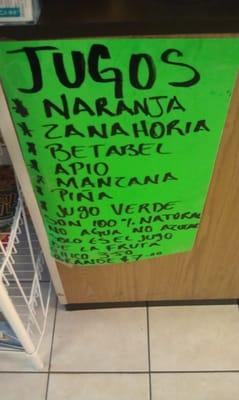 JUGOS
* NARANJA
* ZANAHORIA
* BETABEL
* APIO
* MANZANA
* PIÑA
* JUGO VERDE
SON 100 % NATURAL
NO AGUA NO AZUCAR
SOLO ES EL JUGO
DE LA FRUTA
CHICO 3.50
GRANDE $7.00